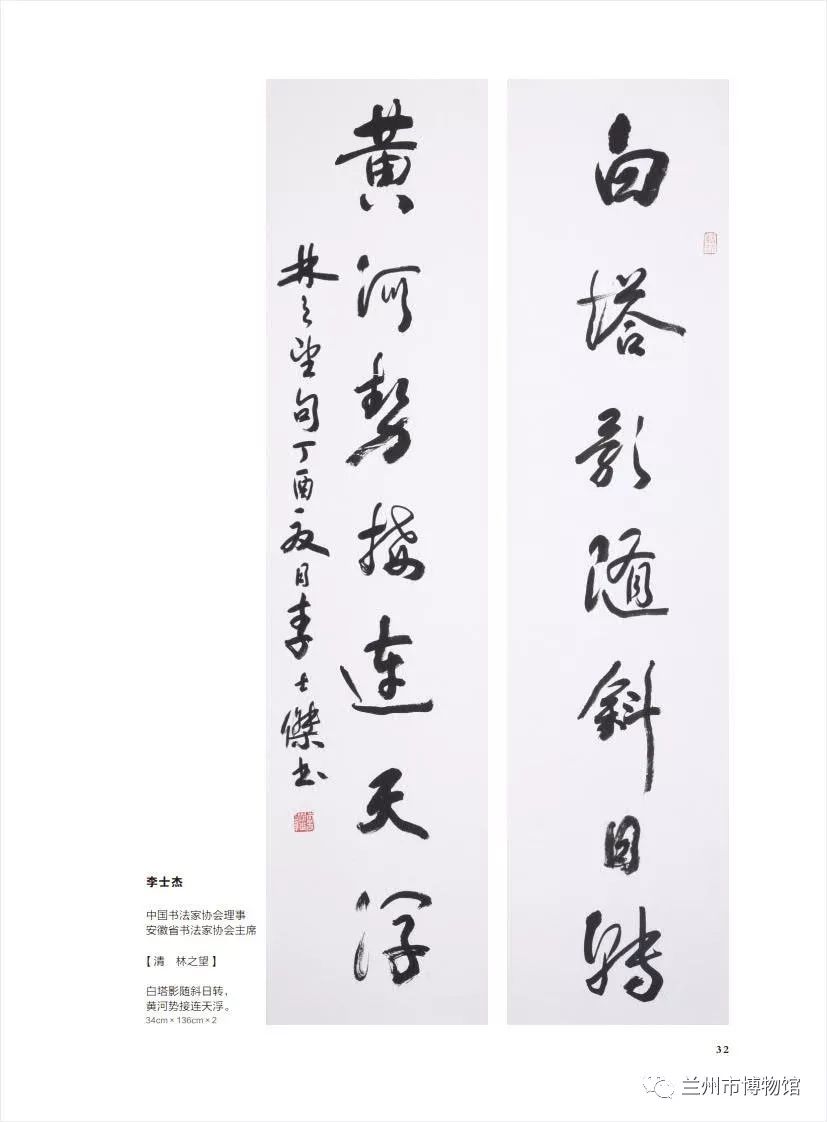 白塔影随斜日转
黄河势接连天浮
林之望句丁酉夏月李士傑书
李士杰
中国书法家协会理事
安徽省书法家协会主席
【清 林之望】
白塔影随斜日转，
黄河势接连天浮。
34cm×136cm×2
32
兰州市博物馆